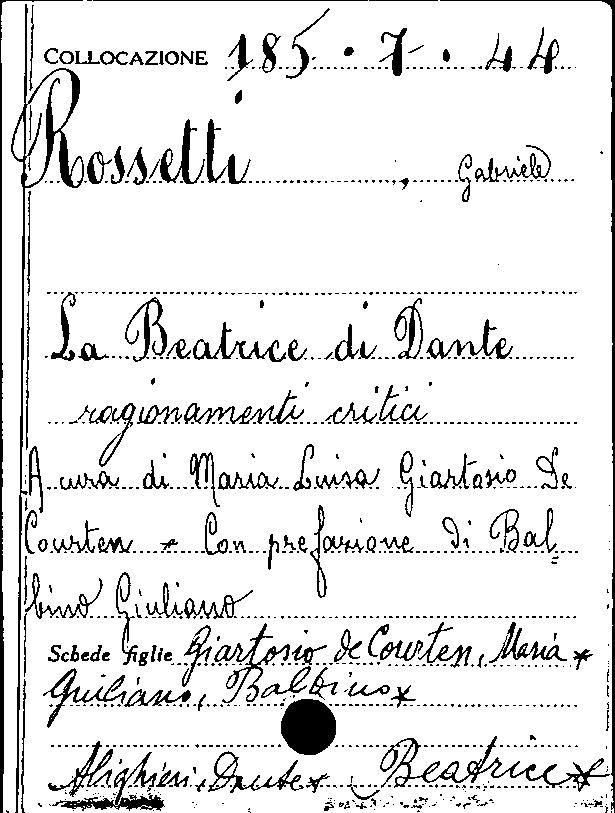 COLLOCAZIONE 185.7.44
Rossetti, Gabriele
La Beatrice di Dante
ragionamenti critici
A cura di Maria Luisa Giartosio De
Courten * Con prefazione di Bal=
bino Giuliano
Schede figlie Giartosio de Courten, Maria *
Giuliano, Balbino *
Alighieri, Dante * Beatrice *